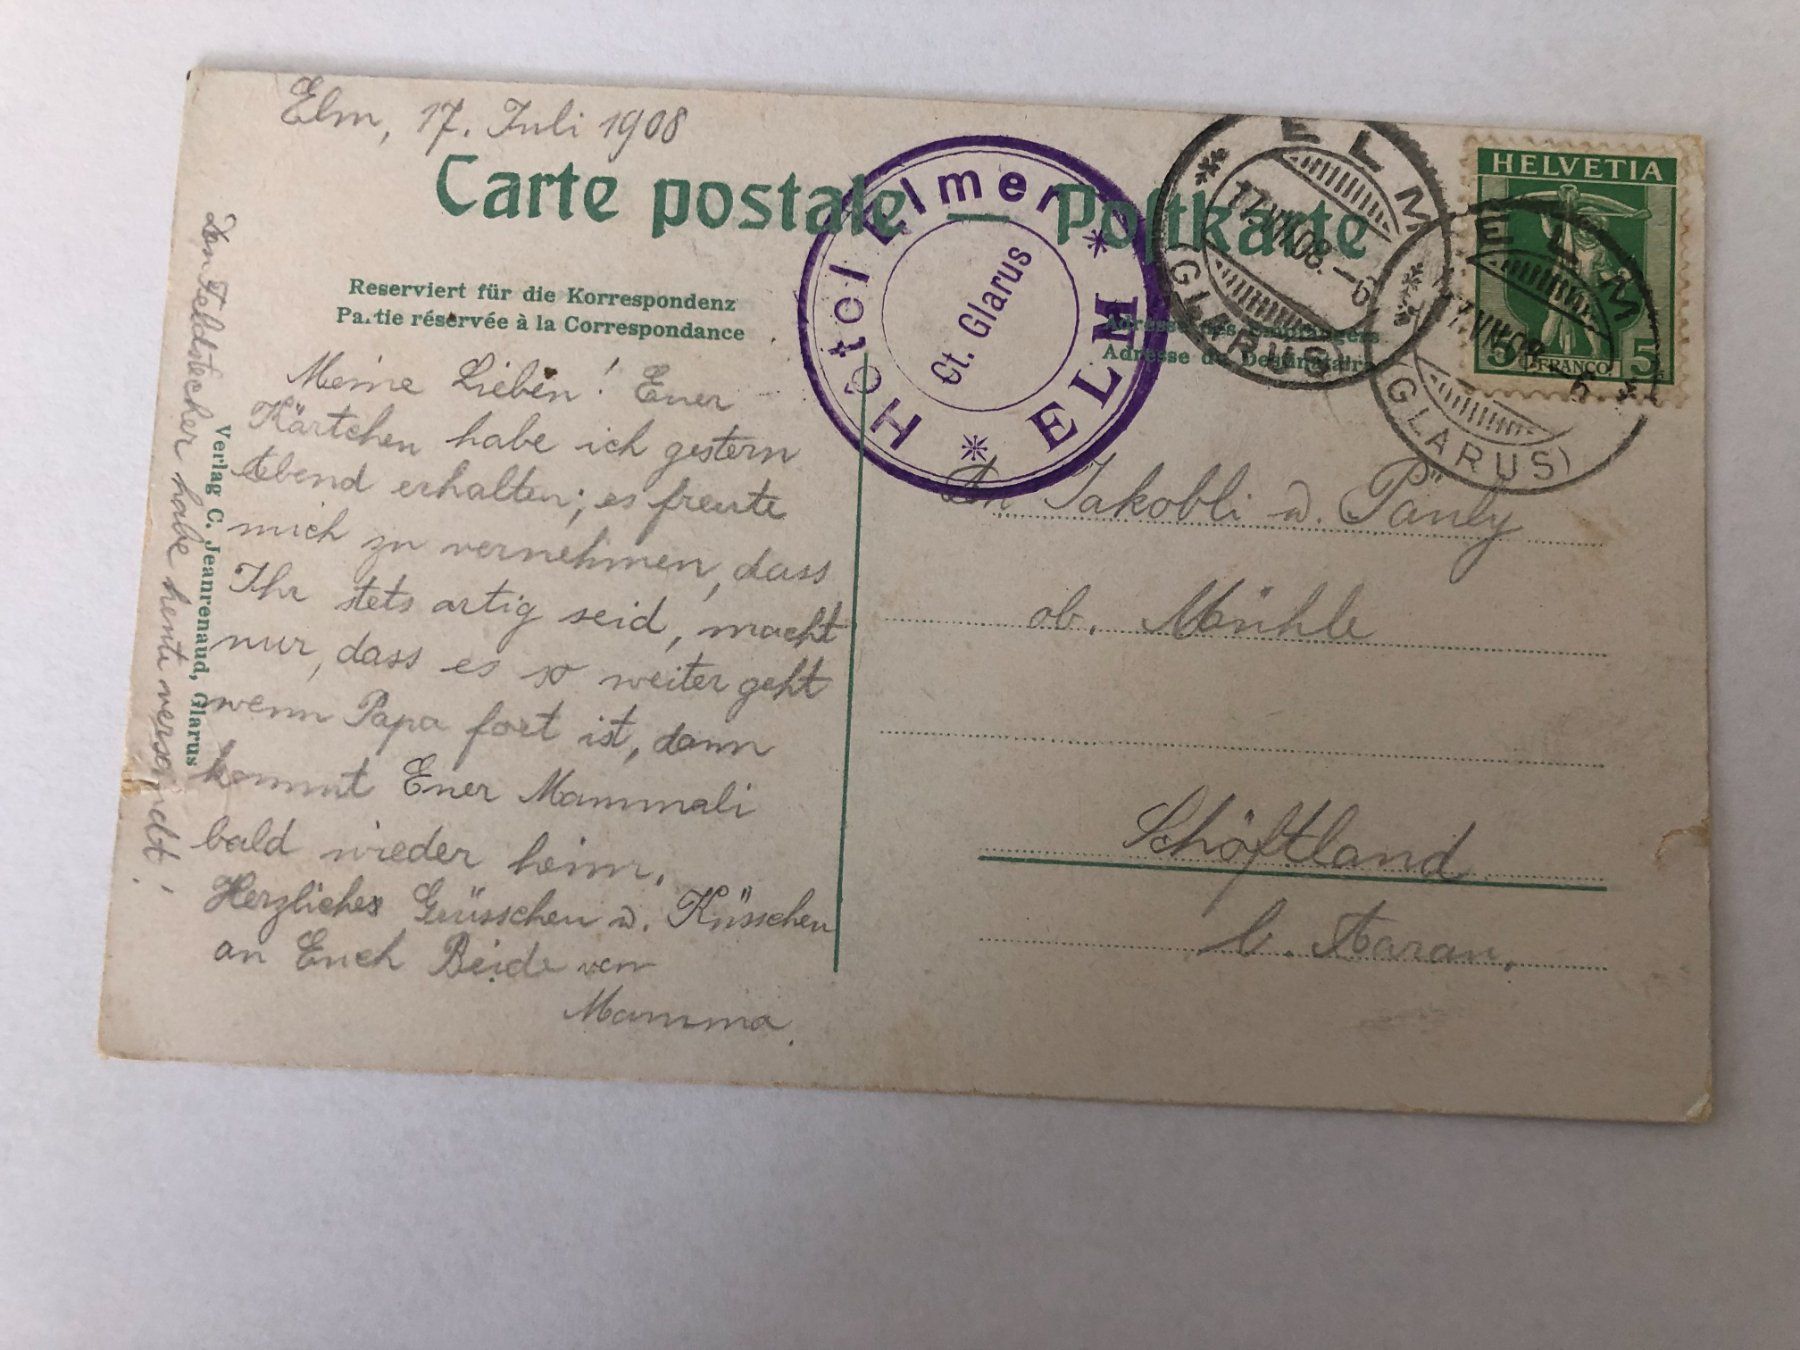 Elm, 17. Juli 1908
Carte postale — Postkarte
Reserviert für die Korrespondenz
Partie réservée à la Correspondance
Meine Lieben! Euer
Kärtchen habe ich gestern
Abend erhalten; es freute
mich zu vernehmen, dass
Ihr stets artig seid, macht
nur, dass es so weiter geht
wenn Papa fort ist, dann
kommt Euer Mammali
bald wieder heim.
Herzliches Grüsschen u. Küsschen
an Euch Beide von
Mamma.
Den Feldstecher habe heute versandt!
Verlag C. Jeanrenaud, Glarus
Hotel Elmer * ELM *
Ct. Glarus
ELM
17.VII.08.-6
(GLARUS)
ELM
17.VII.08.-6
(GLARUS)
HELVETIA
5 FRANCO 5
Adresse des Empfängers
Adresse du Destinataire
An Jakobli u. Pauly
ob. Mühle
Schöftland
b. Aarau.